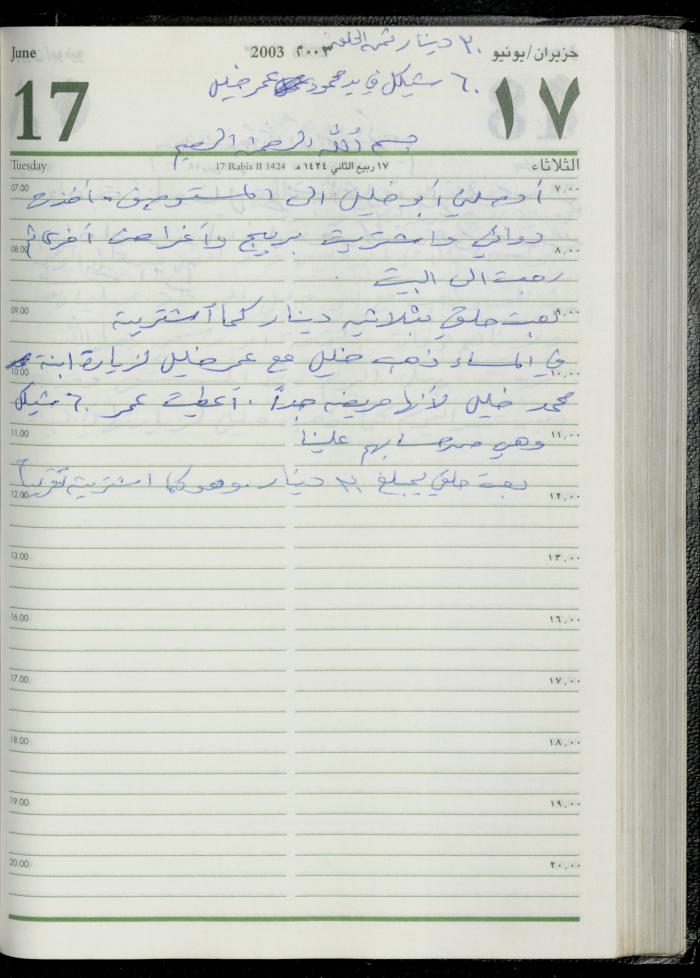 June 2003 ٢٠٠٣ حزيران/يونيو
٣٠ دينار ثمن الحلق
٦٠ شيكل في يد محمود عمر خليل
17 ١٧
بسم الله الرحمن الرحيم
Tuesday 17 Rabia II 1424 ١٧ ربيع الثاني ١٤٢٤ هـ الثلاثاء
07.00 ٧,٠٠
أوصلني أبو خليل الى المستوصف وأخذت
دوائي واشتريت بريبج وأغراض أخرى ثم
08.00 ٨,٠٠
رجعت الى البيت
09.00 ٩,٠٠
بعت حلقي بثلاثين دينار كما أشتريته
في المساء ذهب خليل مع عمر خليل لزيارة ابنة
10.00 ١٠,٠٠
محمد خليل لأنها مريضه جداً . أعطيت عمر ٦٠ شيكل
11.00 ١١,٠٠
وهي من حسابهم علينا
بعت حلقي بمبلغ ٣٠ دينار . وهو كما اشتريته تقريباً
12.00 ١٢,٠٠
13.00 ١٣,٠٠
16.00 ١٦,٠٠
17.00 ١٧,٠٠
18.00 ١٨,٠٠
19.00 ١٩,٠٠
20.00 ٢٠,٠٠